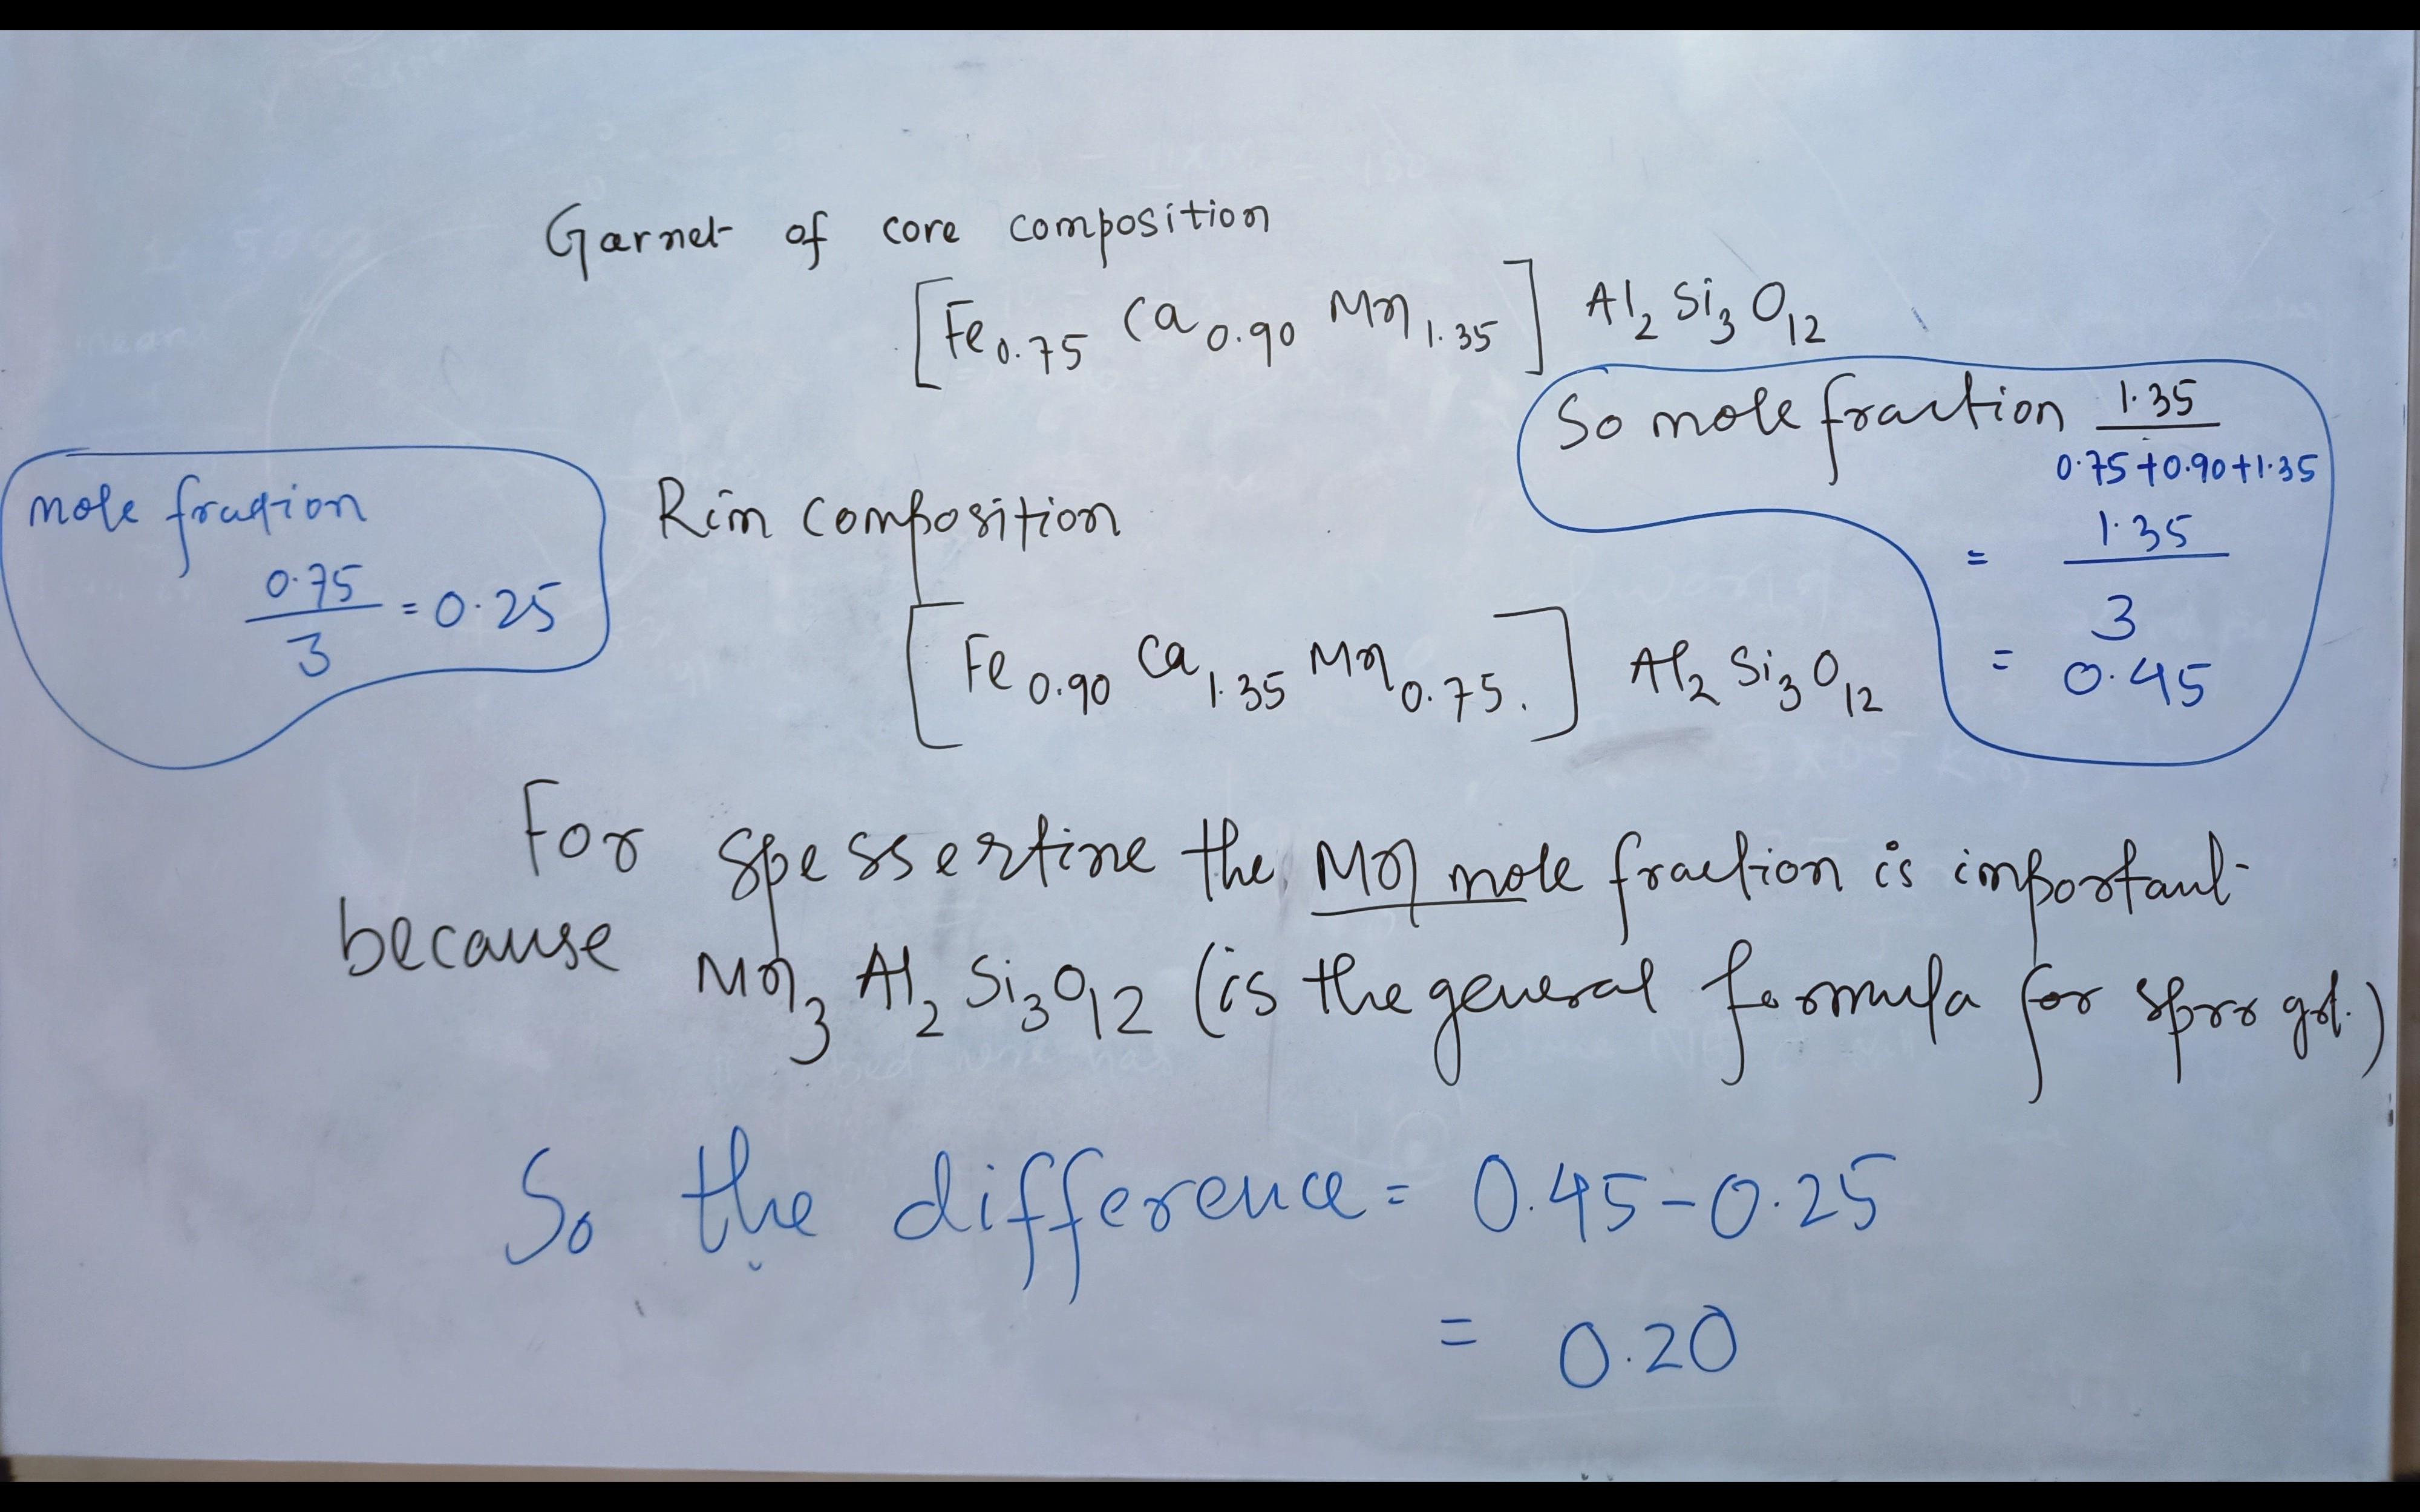 Garnet of core composition
[Fe₀.₇₅ Ca₀.₉₀ Mn₁.₃₅] Al₂ Si₃ O₁₂
So mole fraction 1.35
0.75+0.90+1.35
= 1.35
3
= 0.45
mole fraction
0.75
3
= 0.25
Rim composition
[Fe₀.₉₀ Ca₁.₃₅ Mn₀.₇₅.] Al₂ Si₃ O₁₂
For spessertine the Mn mole fraction is important
because Mn₃ Al₂ Si₃ O₁₂ (is the general formula for grt.)
So the difference = 0.45-0.25
= 0.20